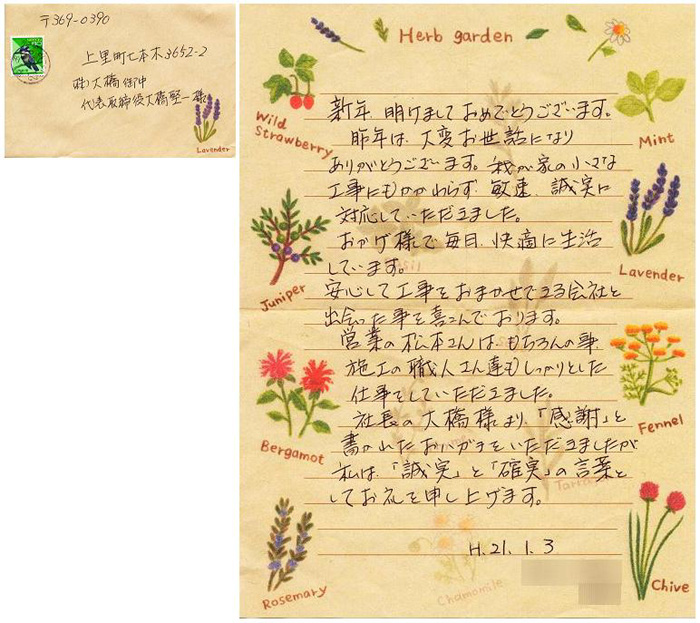 〒369-0390
上里町七本木3652-2
㈱大橋 御中
代表取締役大橋堅一様
Lavender
Herb garden
Wild
Strawberry
Mint
Juniper
Lavender
Bergamot
Fennel
Rosemary
Chamomile
Chive
新年、明けましておめでとうございます。
昨年は、大変お世話になり
ありがとうございます。我が家の小さな
工事にもかかわらず 敏速、誠実に
対応していただきました。
おかげ様で毎日、快適に生活
しています。
安心して工事をおまかせできる会社と
出会った事を喜こんでおります。
営業の松本さんは、もちろんの事
施工の職人さん達もしっかりとした
仕事をしていただきました。
社長の大橋様より、「感謝」と
書かれたおハガキをいただきましたが
私は、「誠実」と「確実」の言葉と
してお礼を申し上げます。
H.21.1.3